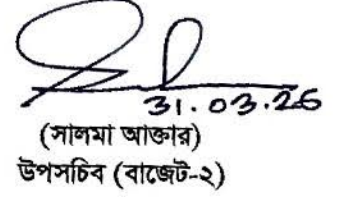 31.03.26
(সালমা আক্তার)
উপসচিব (বাজেট-২)